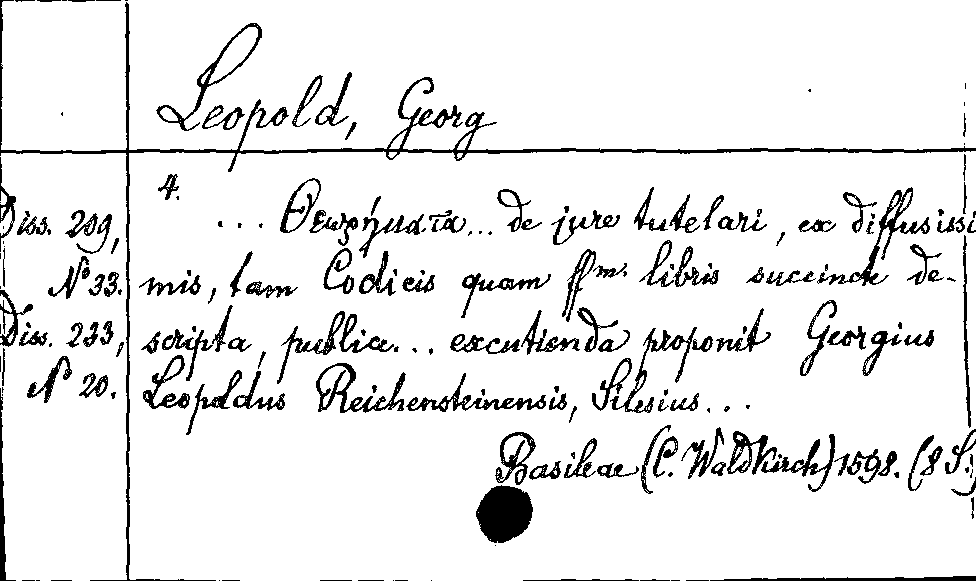 Leopold, Georg
4.
Diss. 299, ... Θεωρήματα... de jure tutelari, ex diffusissi
No 33. mis, tam Codicis quam ffm. libris succincte de-
Diss. 233, scripta, publice... excutienda proponit Georgius
No 20. Leopoldus Reichensteinensis, Silesius...
Basileae (C. Waldkirch) 1598. (8 S.)